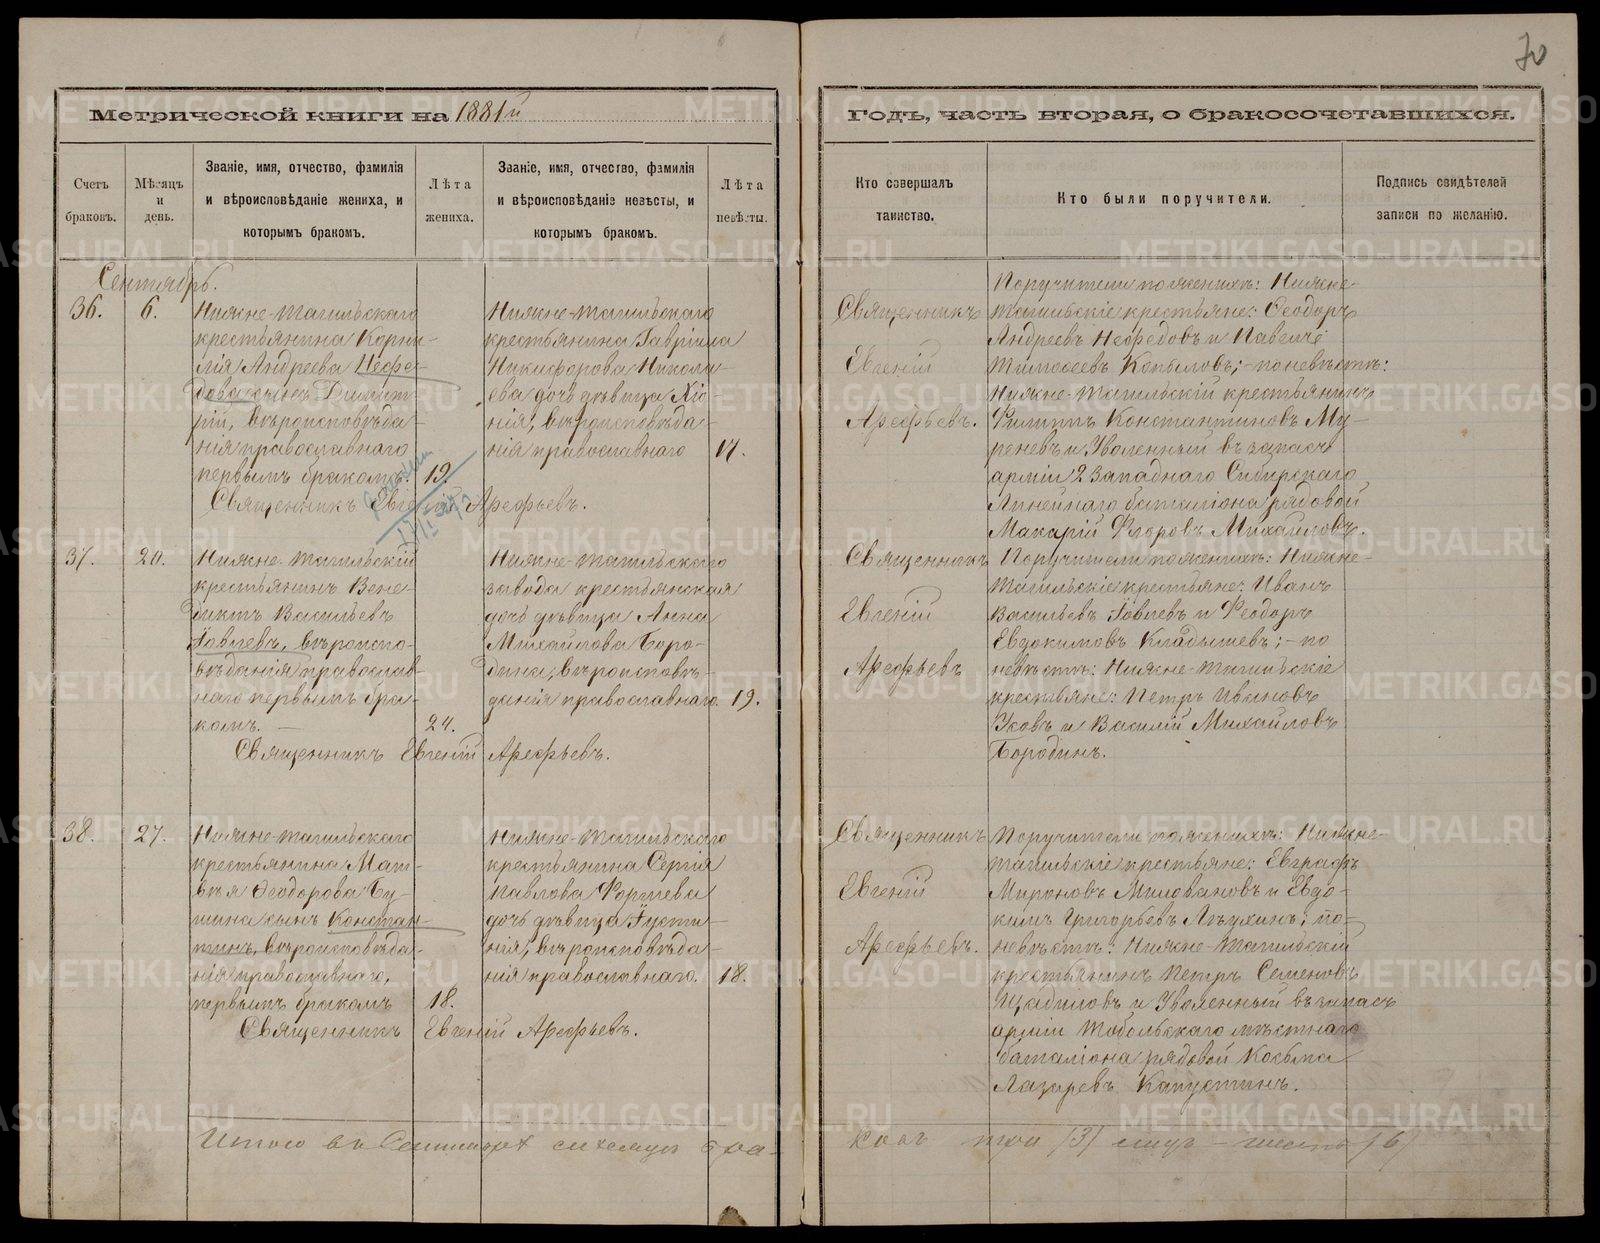 70
Метрической книги на 1881й
Годъ, часть вторая, о бракосочетавшихся.
Счетъ браковъ.
Мѣсяцъ и день.
Званіе, имя, отчество, фамилія
и вѣроисповѣданіе жениха, и
которымъ бракомъ.
Лѣта
жениха.
Званіе, имя, отчество, фамилія
и вѣроисповѣданіе невѣсты, и
которымъ бракомъ.
Лѣта
невѣсты.
Кто совершалъ
таинство.
Кто были поручители.
Подпись свидѣтелей
записи по желанію.
Сентябрь.
36. 6.
Нижне-Тагильскаго
крестьянина Корни-
лія Андреева Нефе-
дова сынъ Димит-
рій, вѣроисповѣда-
нія православнаго
первымъ бракомъ. 19.
Нижне-Тагильскаго
крестьянина Гавріила
Никифорова Никола-
ева дочь дѣвица Хіо-
нія, вѣроисповѣда-
нія православнаго 17.
Священникъ Евгеній Арефьевъ.
Священникъ
Евгеній
Арефьевъ.
Поручители по женихѣ: Нижне-
тагильскіе крестьяне: Ѳеодоръ
Андреевъ Нефедовъ и Павелъ
Тимофеевъ Копыловъ; - по невѣстѣ:
Нижне-Тагильскій крестьянинъ
Филиппъ Константиновъ Му-
реневъ и Уволенный въ запасъ
арміи 2 Западнаго Сибирскаго
Линейнаго баталіона рядовой
Макарій Флоровъ Михайловъ.
37. 20.
Нижне-Тагильскій
крестьянинъ Вене-
диктъ Васильевъ
Іовлевъ, вѣроиспо-
вѣданія православ-
наго первымъ бра-
комъ. — 24.
Нижне-Тагильскаго
завода крестьянская
дочь дѣвица Анна
Михайлова Боро-
дина, вѣроисповѣ-
данія православнаго. 19.
Священникъ Евгеній Арефьевъ.
Священникъ
Евгеній
Арефьевъ
Поручители по женихѣ: Нижне-
Тагильскіе крестьяне: Иванъ
Васильевъ Іовлевъ и Ѳеодоръ
Евдокимовъ Кладышевъ; - по
невѣстѣ: Нижне-Тагильскіе
крестьяне: Петръ Ивановъ
Ужовъ и Василій Михайловъ
Бородинъ.
38. 27.
Нижне-Тагильскаго
крестьянина Мат-
вѣя Ѳеодорова Бу-
шина сынъ Констан-
тинъ, вѣроисповѣда-
нія православнаго,
первымъ бракомъ 18.
Нижне-Тагильскаго
крестьянина Сергія
Павлова Фортева
дочь дѣвица Іусти-
нія, вѣроисповѣда-
нія православнаго. 18.
Священникъ Евгеній Арефьевъ.
Священникъ
Евгеній
Арефьевъ.
Поручители по женихѣ: Нижне-
тагильскіе крестьяне: Евграфъ
Мироновъ Миловановъ и Евдо-
кимъ Григорьевъ Лѣухинъ; по-
невѣстѣ: Нижне-Тагильскій
крестьянинъ Петръ Семеновъ
Щадиловъ и Уволенный въ запасъ
арміи Тобольскаго мѣстнаго
баталіона рядовой Косьма
Лазаревъ Капустинъ.
Итого въ Сентябрѣ мѣсяцѣ бра-
ковъ три (3) лицъ шесть (6)
METRIKI.GASO-URAL.RU